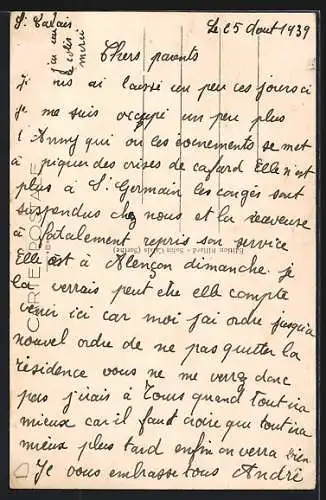 St Calais Le 25 Aout 1939
j'ai un
le colis
merci
Chers parents
Je vs ai laissé un peu ces jours ci
je me suis occupé un peu plus
d'Anny qui vu les évenements se met
à piquer des crises de cafard Elle n'est
plus à St Germain les congés sont
suspendus chez nous et la receveuse
à fatalement repris son service
Elle est à Alençon dimanche. je
la verrais peut etre elle compte
venir ici car moi j'ai ordre jusqu'a
nouvel ordre de ne pas quitter la
résidence vous ne me verrez donc
pas j'irais à Tours quand tout ira
mieux car il faut croire que tout ira
mieux plus tard enfin on verra bien
Je vous embrasse tous André
CARTE POSTALE
Edition - Saint-Calais (Sarthe)